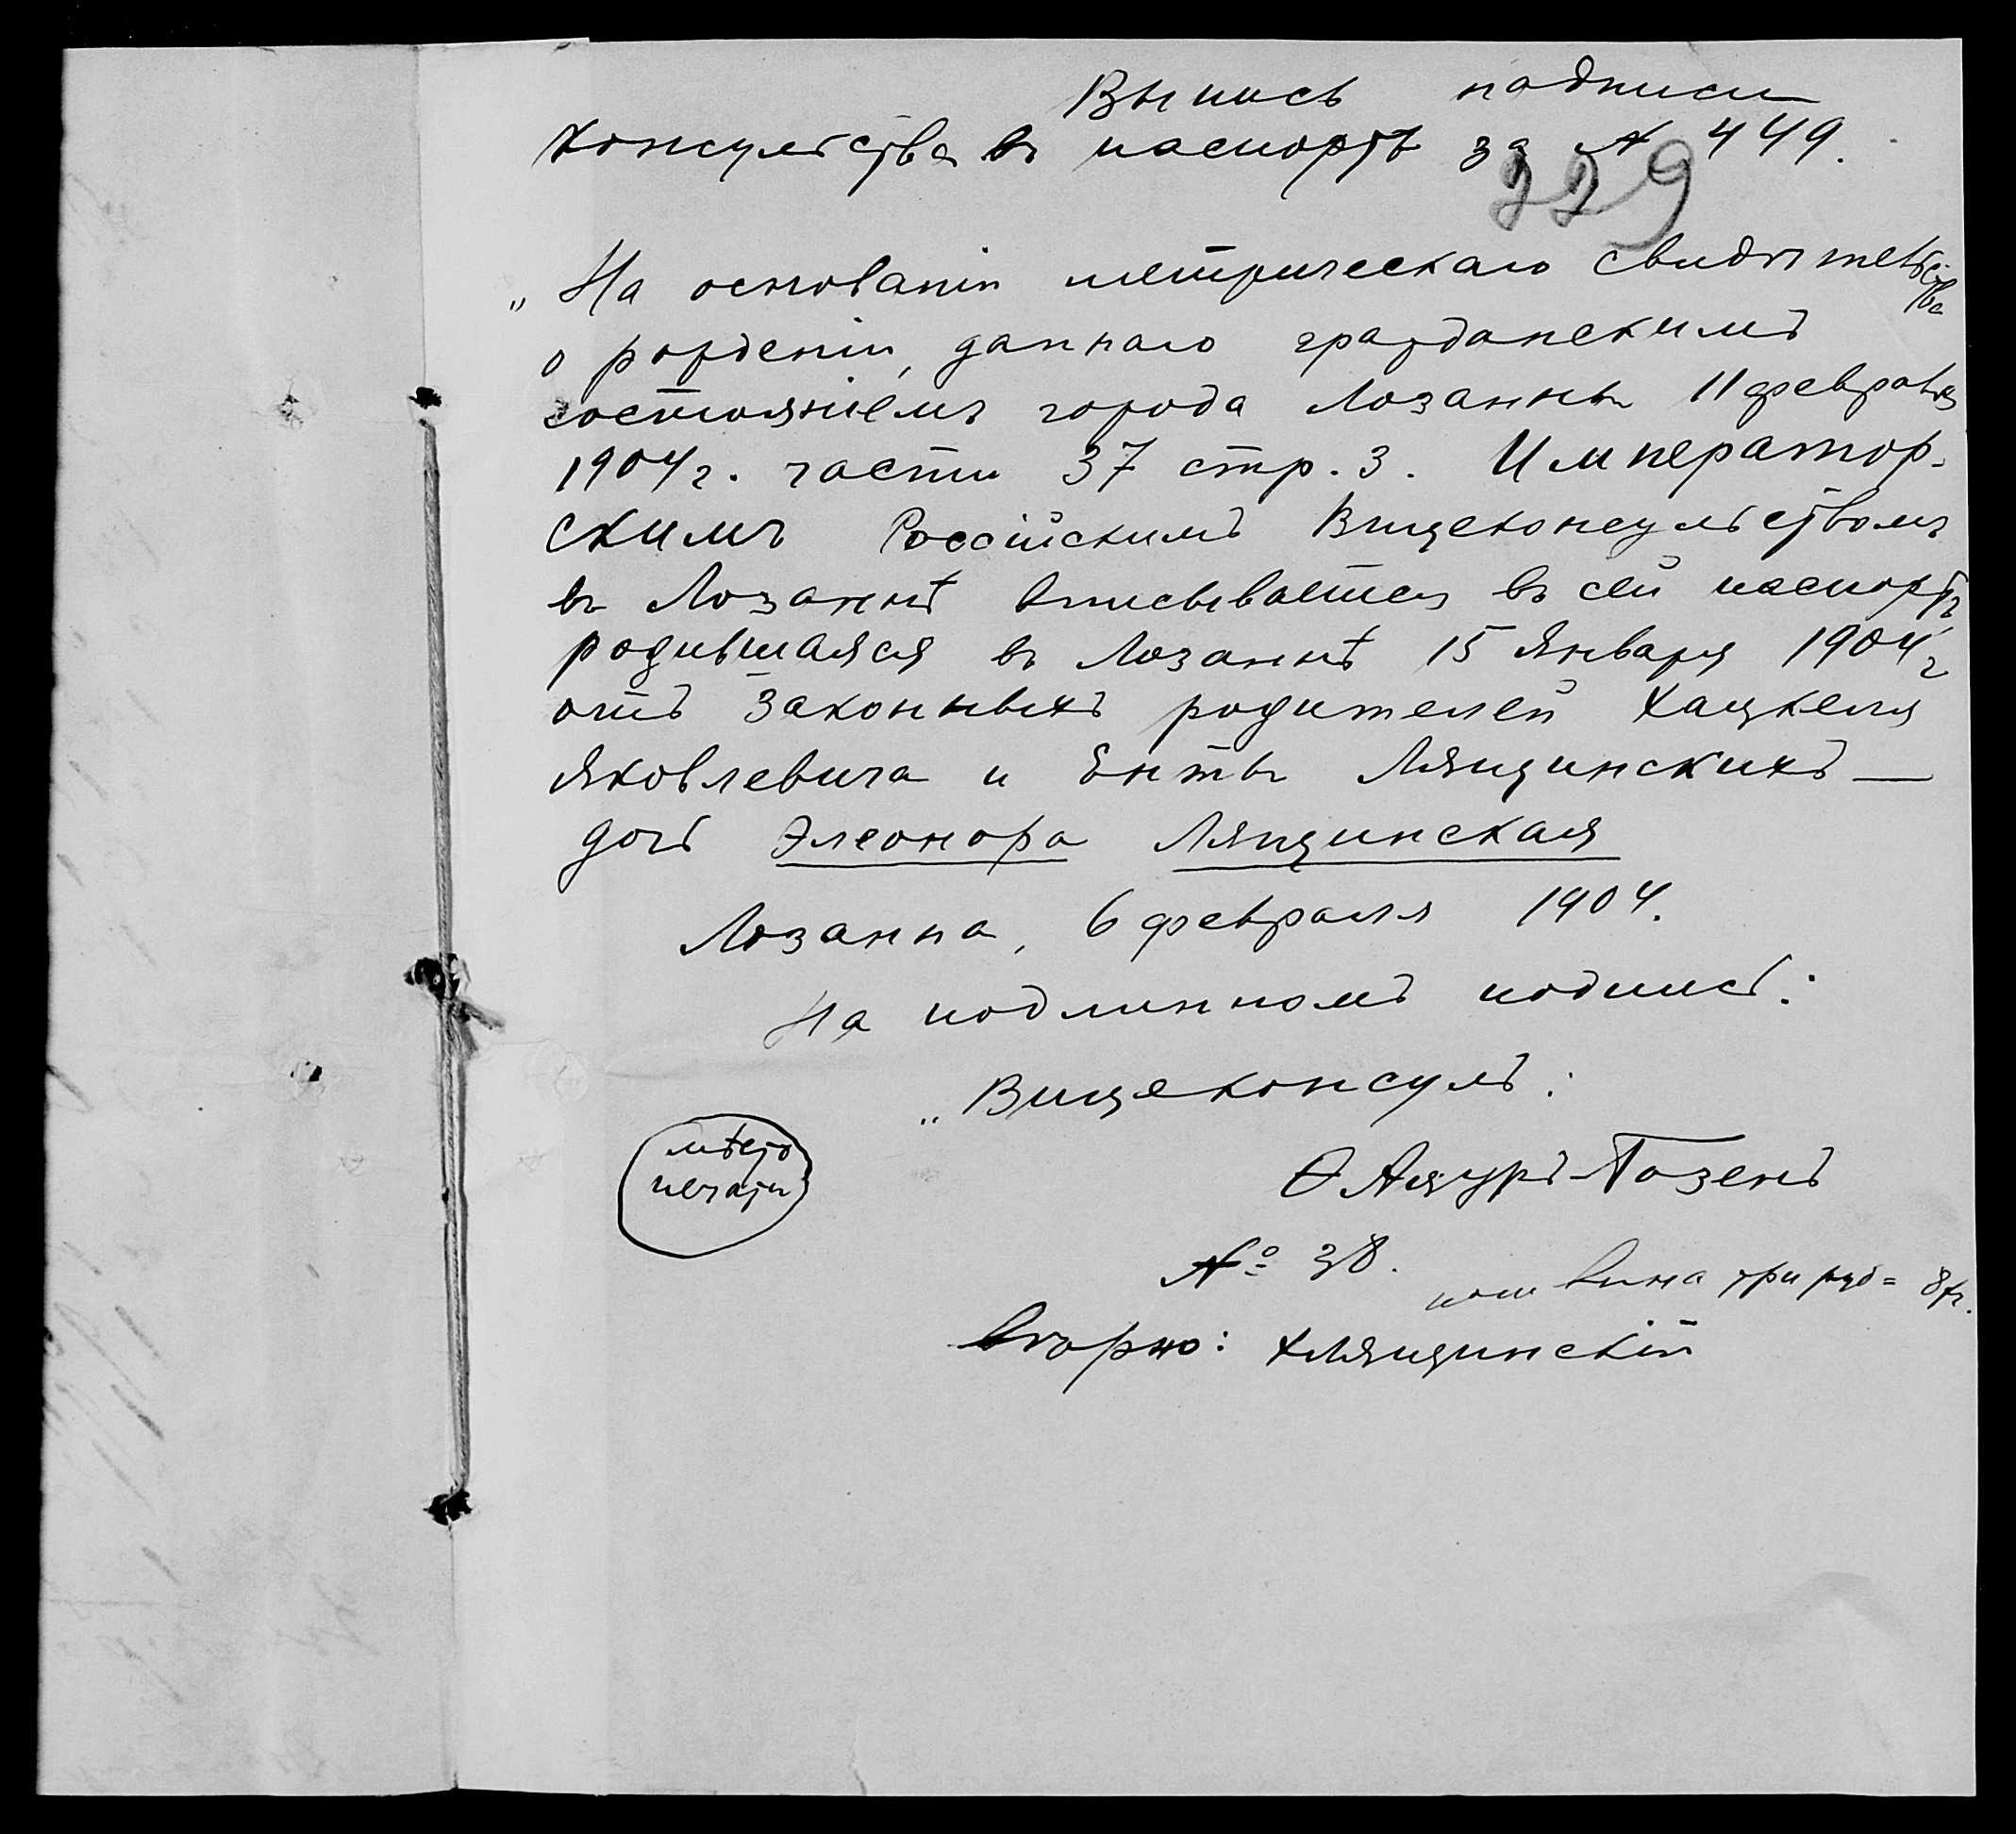 Выпись надписи
Консульства въ паспортѣ за № 449.
229
„На основаніи метрическаго свидѣтельства
о рожденіи, даннаго гражданскимъ
состояніемъ города Лозанны 11 февраля
1904 г. части 37 стр. 3. Император-
скимъ Россійскимъ Вицеконсульствомъ
въ Лозаннѣ вписывается въ сей паспортъ
родившаяся въ Лозаннѣ 15 Января 1904 г
отъ законныхъ родителей Хацкеля
Яковлевича и Енты Лящинскихъ —
дочь Элеонора Лящинская
Лозанна, 6 февраля 1904.
На подлинномъ подпись:
„Вицеконсулъ:
мѣсто
печати
№ 38.
пошлина три руб = 8 fr.
Вѣрно: Х Лящинскій